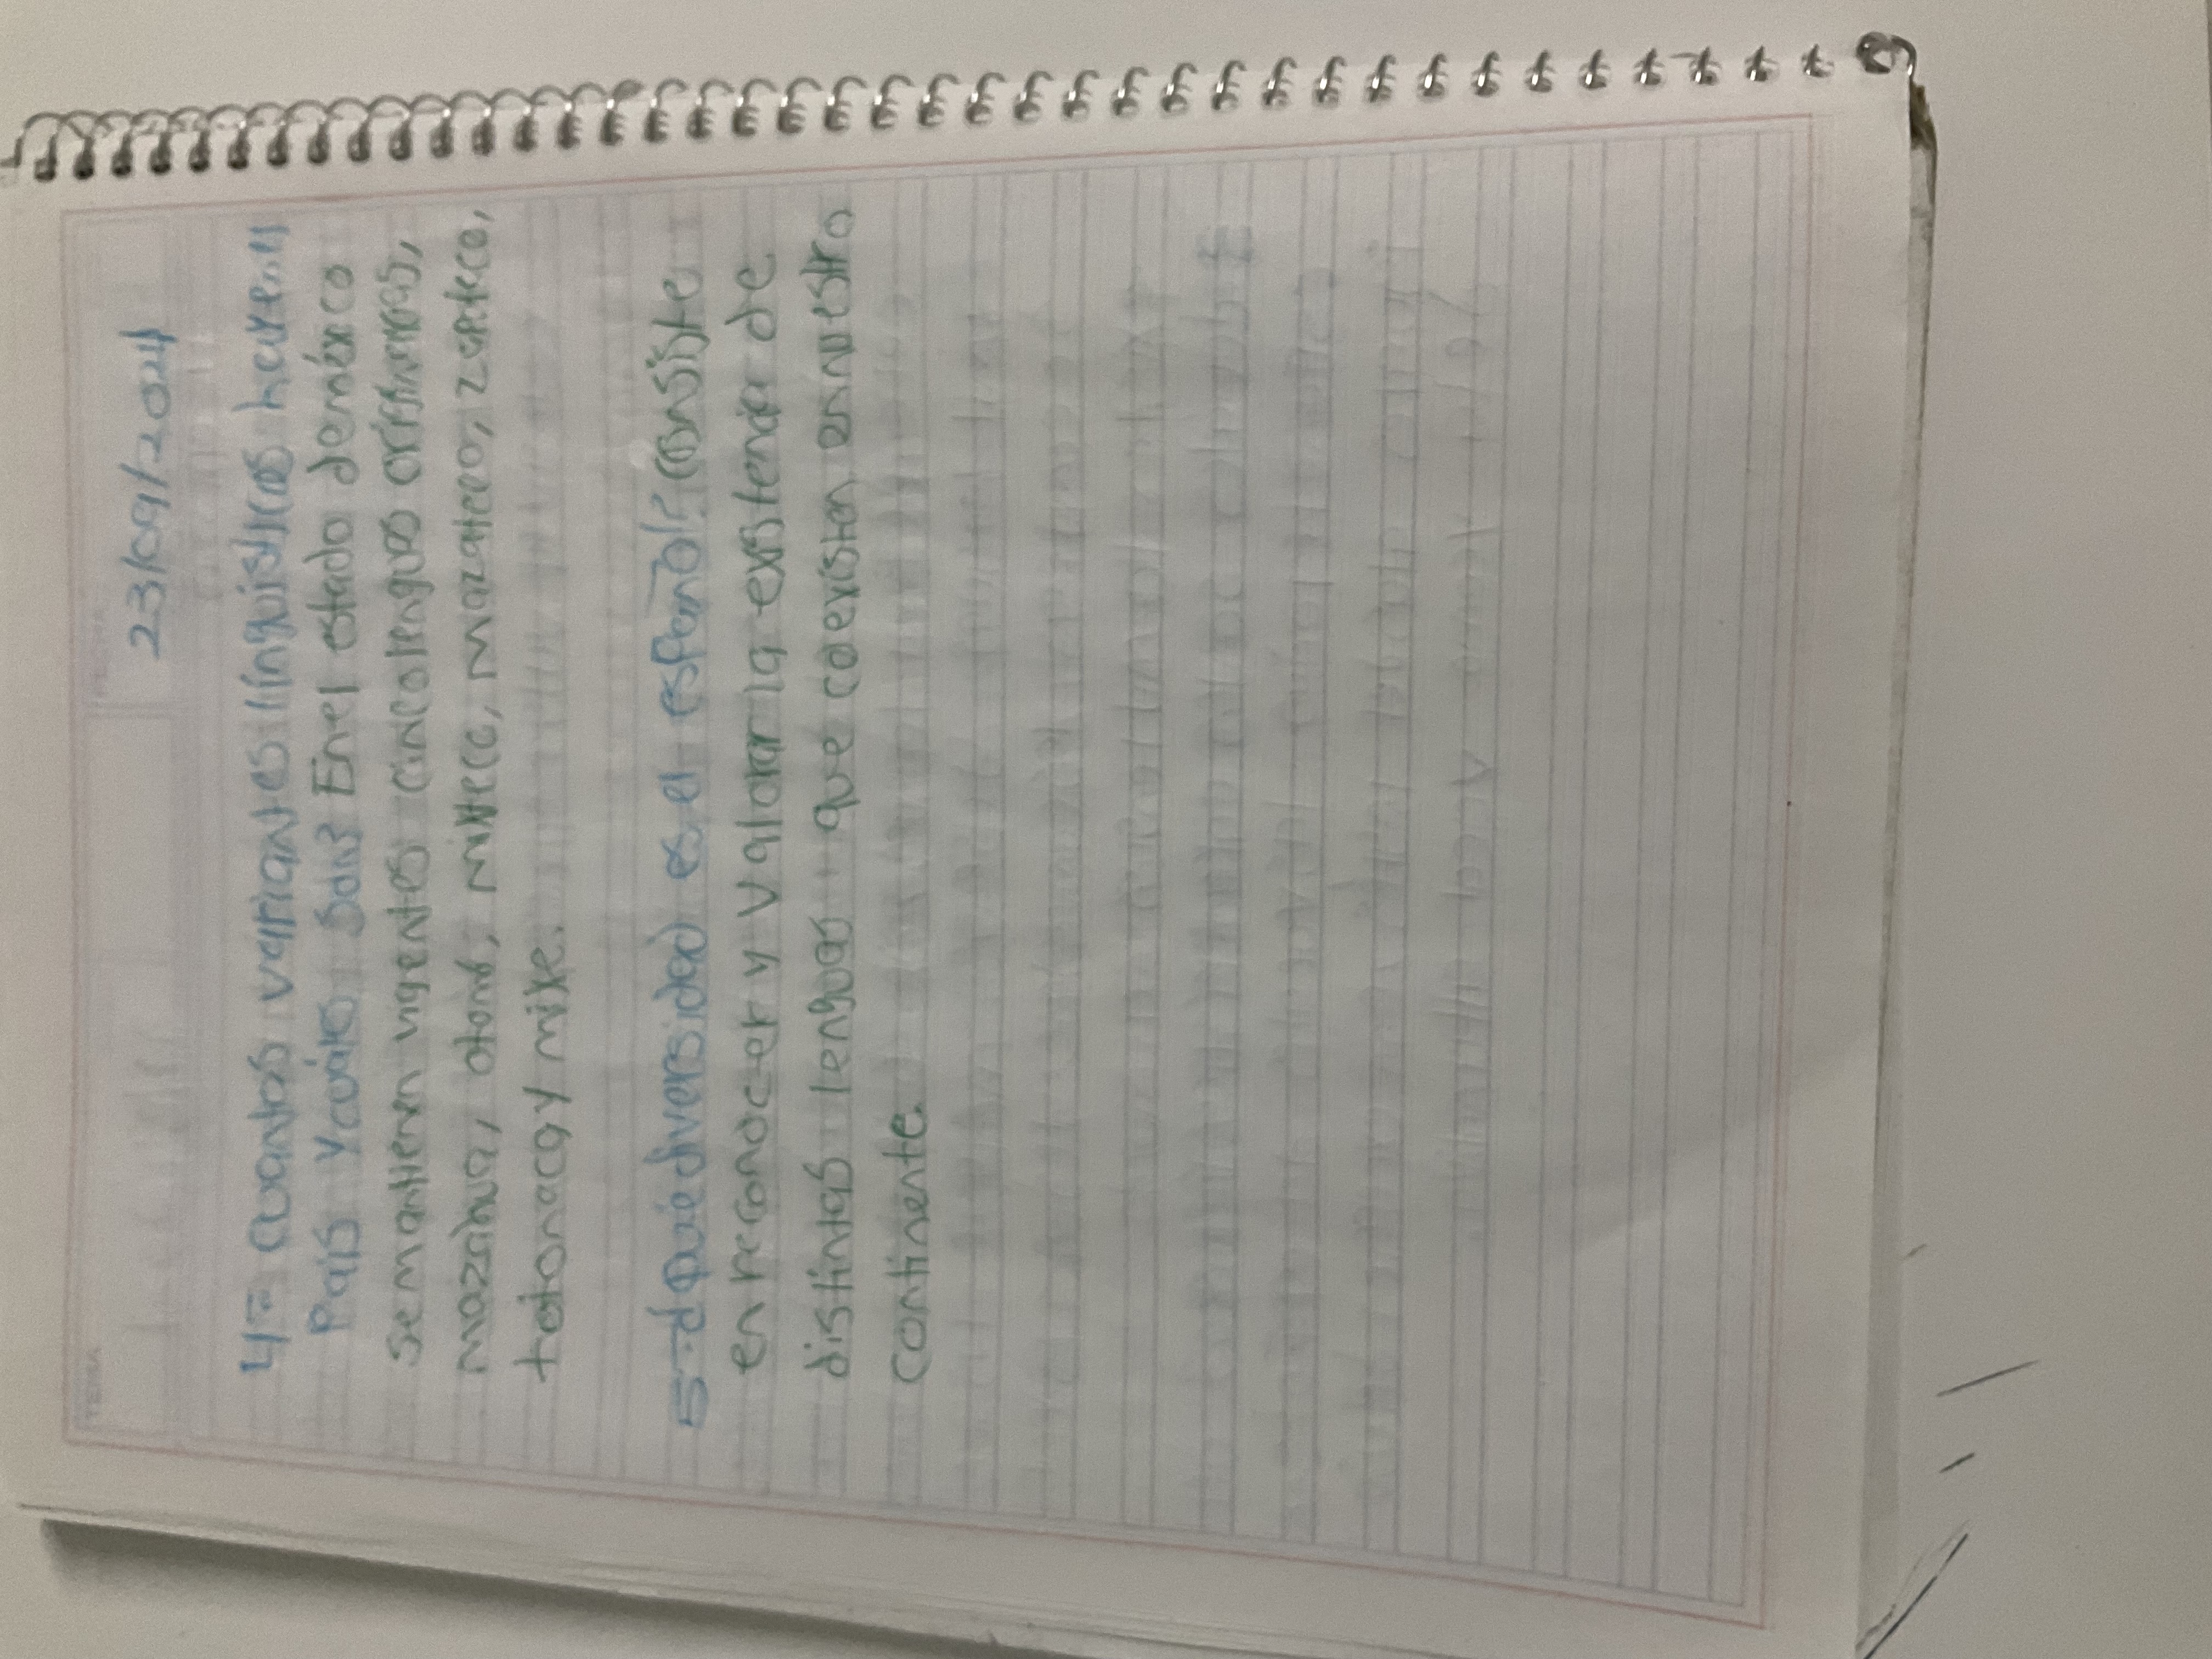 TEMA
FECHA
23/09/2024
4= cuantas variantes lingüisticas hay en el
País y cuáles son? En el estado de méxico
se mantienen vigentes cinco lenguas originarias,
mazahua, otomí, mixteco, mazateco, zapoteco,
totonaca y mixe.
5-¿Qué diversidad es el español? consiste
en reconocer y valorar la existencia de
distintas lenguas que coexisten en nuestro
continente.